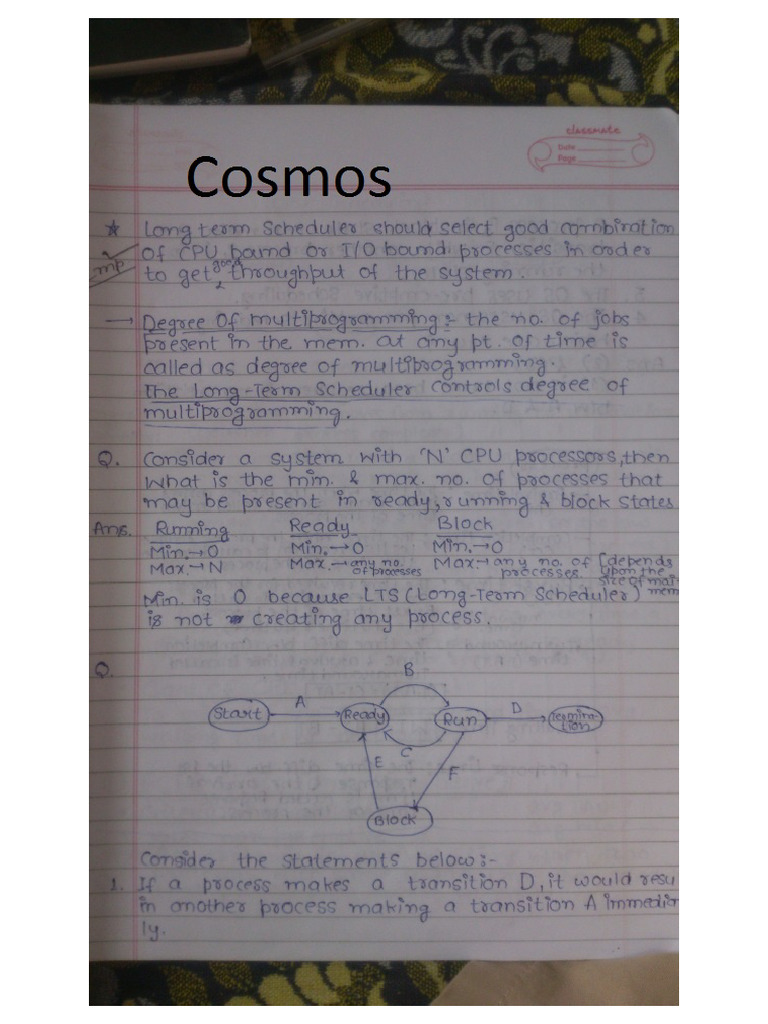 classmate
Date
Page
Cosmos
★ Long term Scheduler should select good combination
of CPU bound or I/O bound processes in order
imp to get good throughput of the system.
→ Degree Of multiprogramming :- the no. of jobs
present in the mem. at any pt. of time is
called as degree of multiprogramming.
The Long-Term Scheduler controls degree of
multiprogramming.
Q. Consider a system with 'N' CPU processors, then
What is the min. & max. no. of processes that
may be present in ready, running & block states
Ans. Running Ready Block
Min.→0 Min.→0 Min.→0
Max.→N Max.→any no. of processes Max→any no. of processes. [depends upon the size of mai mem
Min. is 0 because LTS (Long-Term Scheduler)
is not creating any process.
Q.
B
A D
Start Ready Run Termination
C
E F
Block
Consider the statements below:-
1. If a process makes a transition D, it would resu
in another process making a transition A immedia
ly.